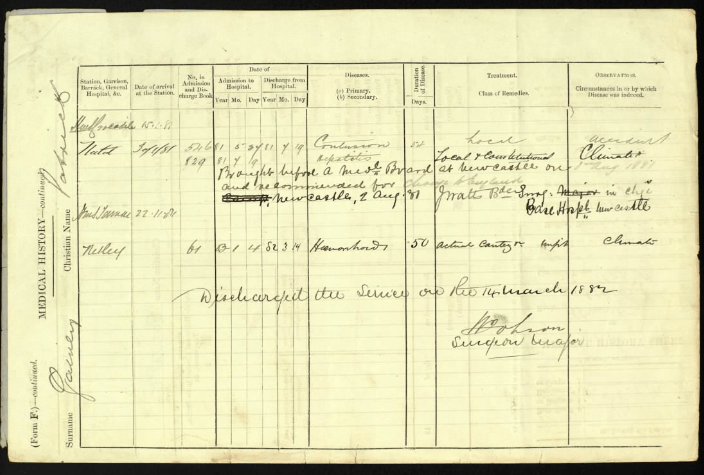 (Form F.)—continued.
MEDICAL HISTORY—continued.
Surname
Christian Name Patrick
Station, Garrison, Barrack, General Hospital, &c.
Date of arrival at the Station
No. in Admission and Discharge Book
Date of
Admission to Hospital.
Discharge from Hospital.
Year Mo. Day Year Mo. Day
Diseases.
(a) Primary.
(b) Secondary.
Duration of Disease.
Days.
Treatment.
Class of Remedies.
OBSERVATION.
Circumstances in or by which Disease was induced.
15.2.81 Local accident
Natal 546 81 5 27 81 7 19 Contusion 54 Local & Constitutional Climate
829 81 7 9
Brought before a Medl Board at Newcastle on 1 Aug 1881
and recommended for change to England
Newcastle, 2 Aug. 81 J Watts Surg. Major in chge
Base Hospl Newcastle
22.11.81
Netley 61 1 4 82 3 14 Hæmorrhoids 50 actual Cautery & Climate
Discharged the Service on the 14 March 1882
Surgeon Major